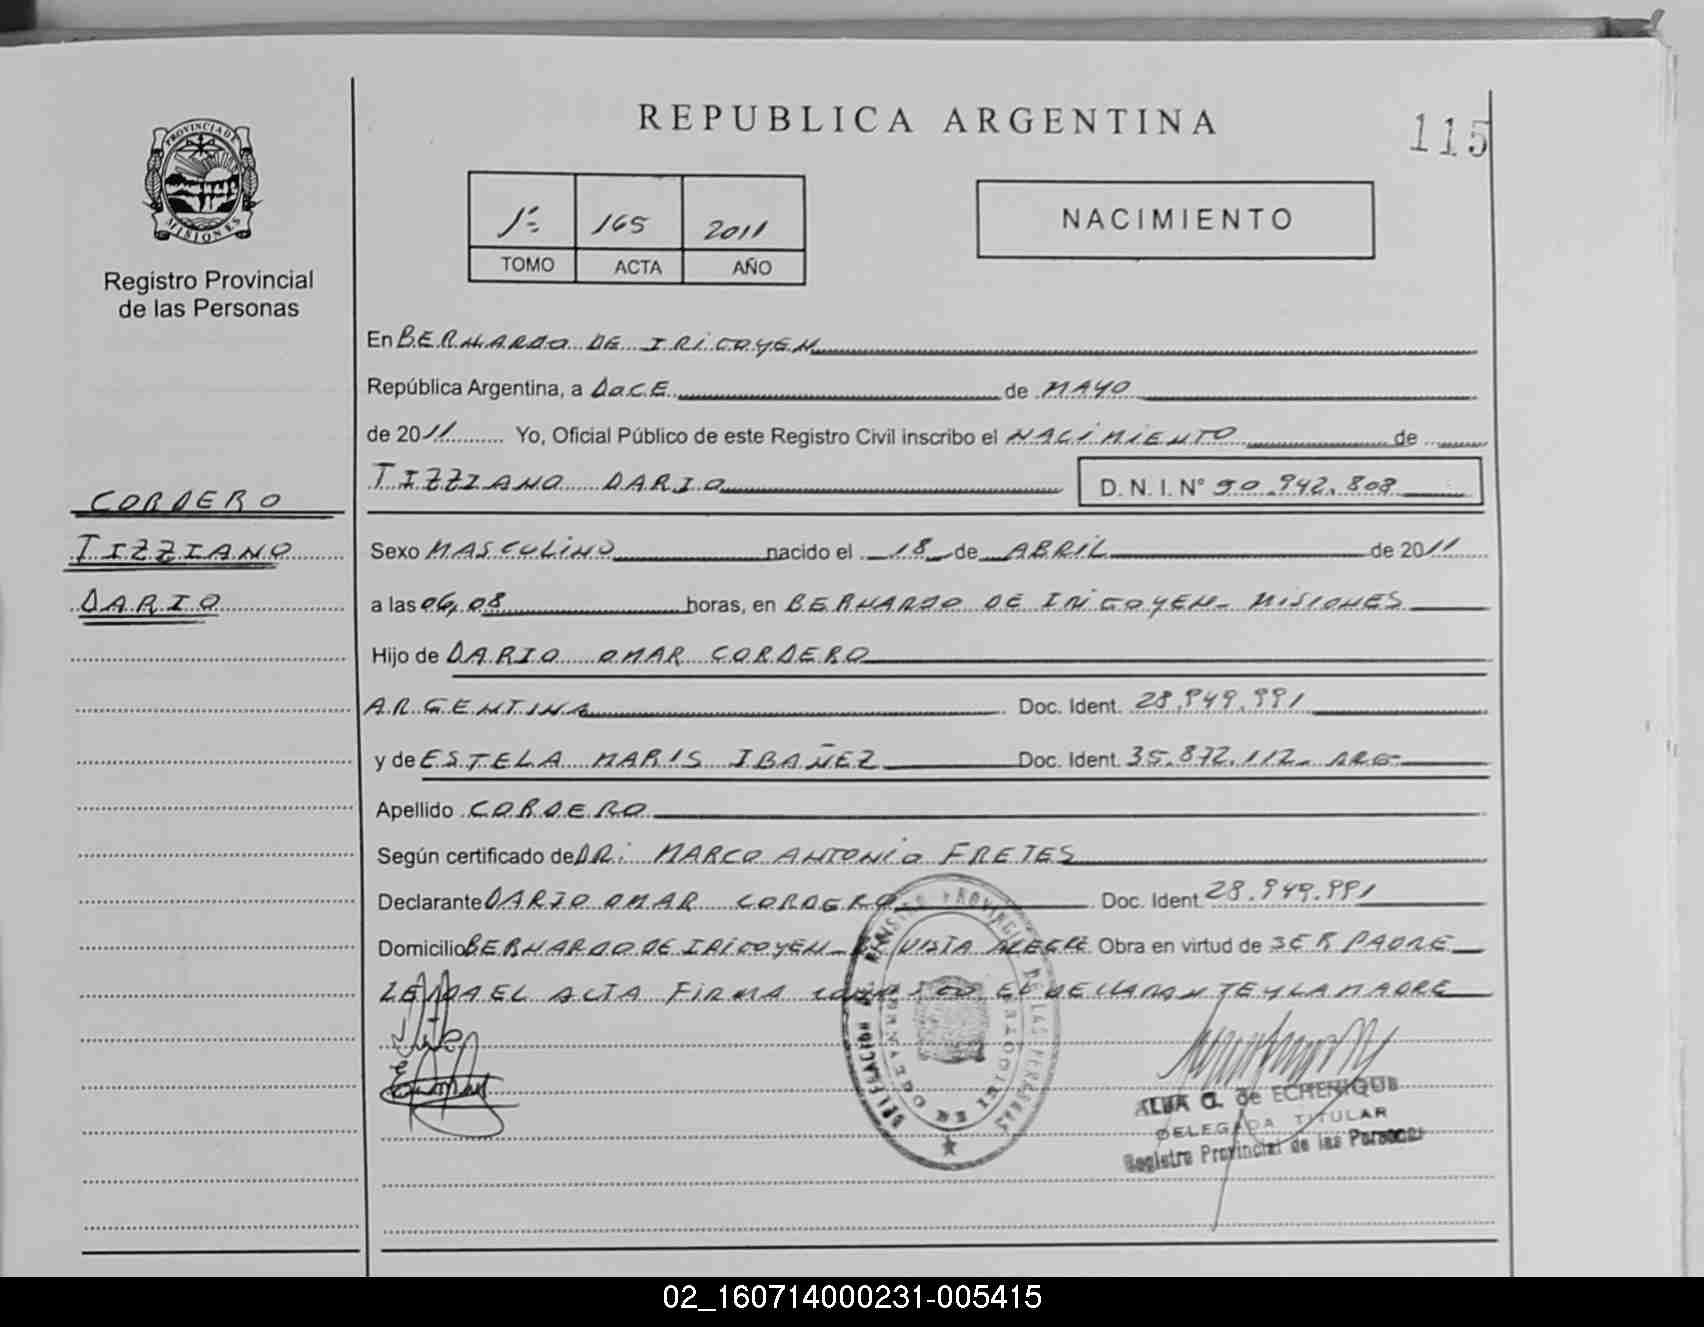 REPUBLICA ARGENTINA
115
PROVINCIA DE
MISIONES
Registro Provincial
de las Personas
1º 165 2011
TOMO ACTA AÑO
NACIMIENTO
En BERNARDO DE IRIGOYEN
República Argentina, a DOCE de MAYO
de 2011 Yo, Oficial Público de este Registro Civil inscribo el NACIMIENTO de
TIZZIANO DARIO D. N. I. Nº 50.942.808
CORDERO
TIZZIANO
DARIO
Sexo MASCULINO nacido el 18 de ABRIL de 2011
a las 06,08 horas, en BERNARDO DE IRIGOYEN - MISIONES
Hijo de DARIO OMAR CORDERO
ARGENTINA Doc. Ident. 28.949.991
y de ESTELA MARIS IBAÑEZ Doc. Ident. 35.872.112- ARG-
Apellido CORDERO
Según certificado de DR: MARCO ANTONIO FRETES
Declarante DARIO OMAR CORDERO Doc. Ident. 28.949.991
Domicilio BERNARDO DE IRIGOYEN - VISTA ALEGRE Obra en virtud de SER PADRE
LEIDA EL ACTA FIRMA CONMIGO EL DECLARANTE Y LA MADRE
REGISTRO PROVINCIAL DE LAS PERSONAS
DELEGACION
BERNARDO DE IRIGOYEN
ALBA G. de ECHENIQUE
DELEGADA TITULAR
Registro Provincial de las Personas
02_160714000231-005415